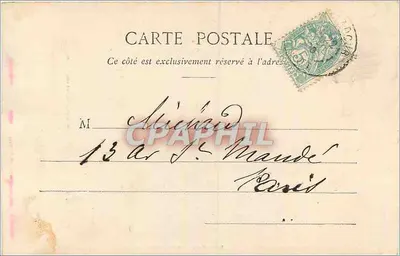 CARTE POSTALE
Ce côté est exclusivement réservé à l'adres
M Michaud
CPAPHIL
13 Av St Mandé
Paris